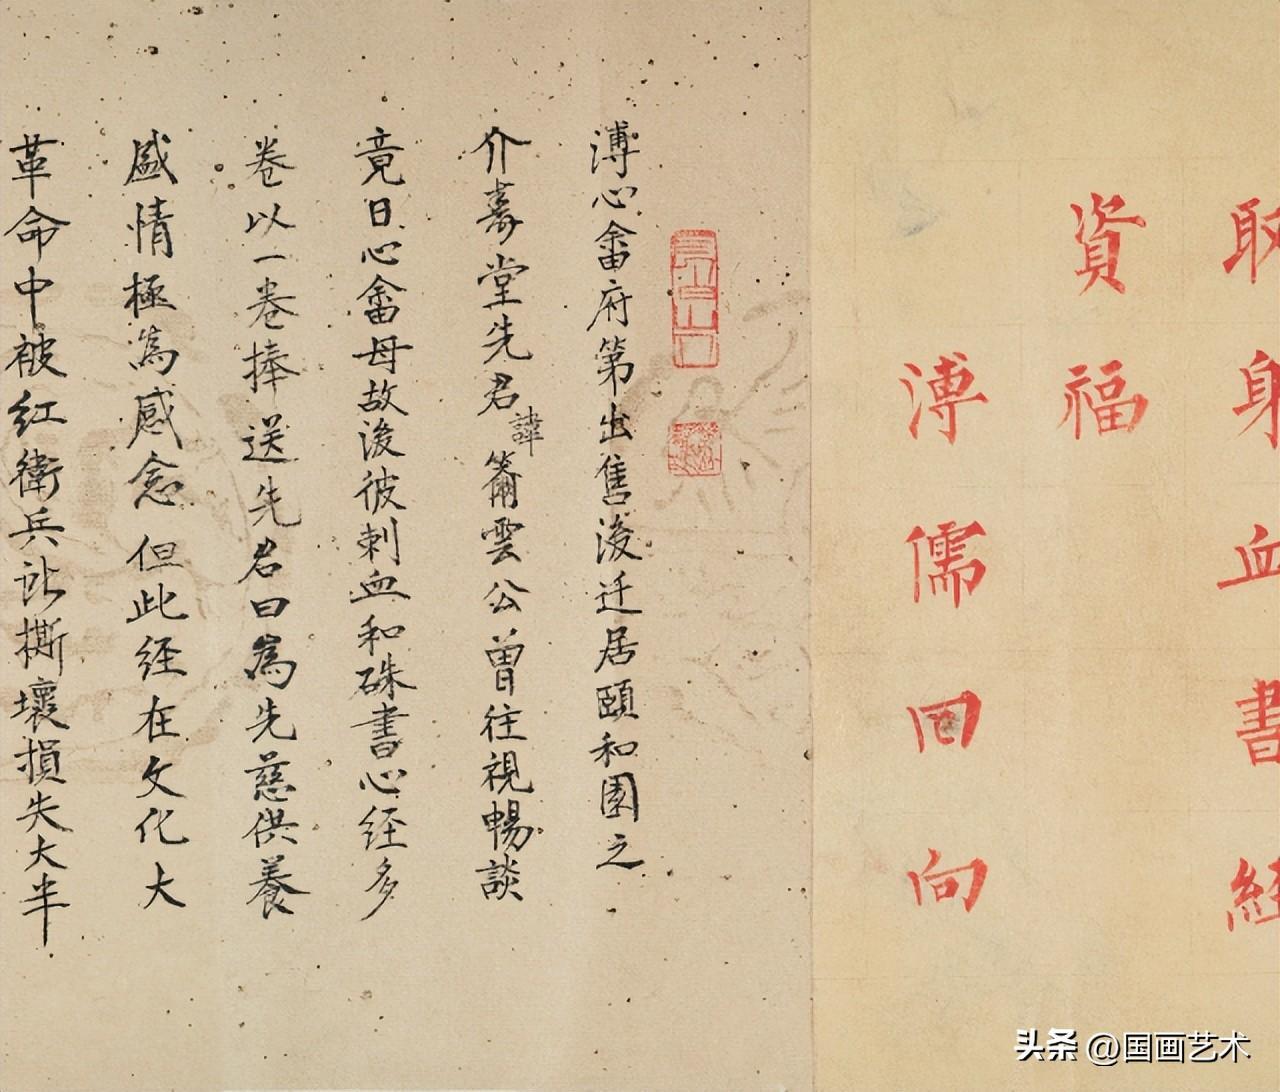 耴身血書経
資福
溥儒回向
溥心畬府第出售後迁居頤和園之
介壽堂先君諱簫雲公曾往視暢談
竟日心畬母故後彼刺血和硃書心经多
卷以一卷捧送先君曰為先慈供養
盛情極為感念但此经在文化大
革命中被红衛兵站撕壞損失大半
头条 @国画艺术